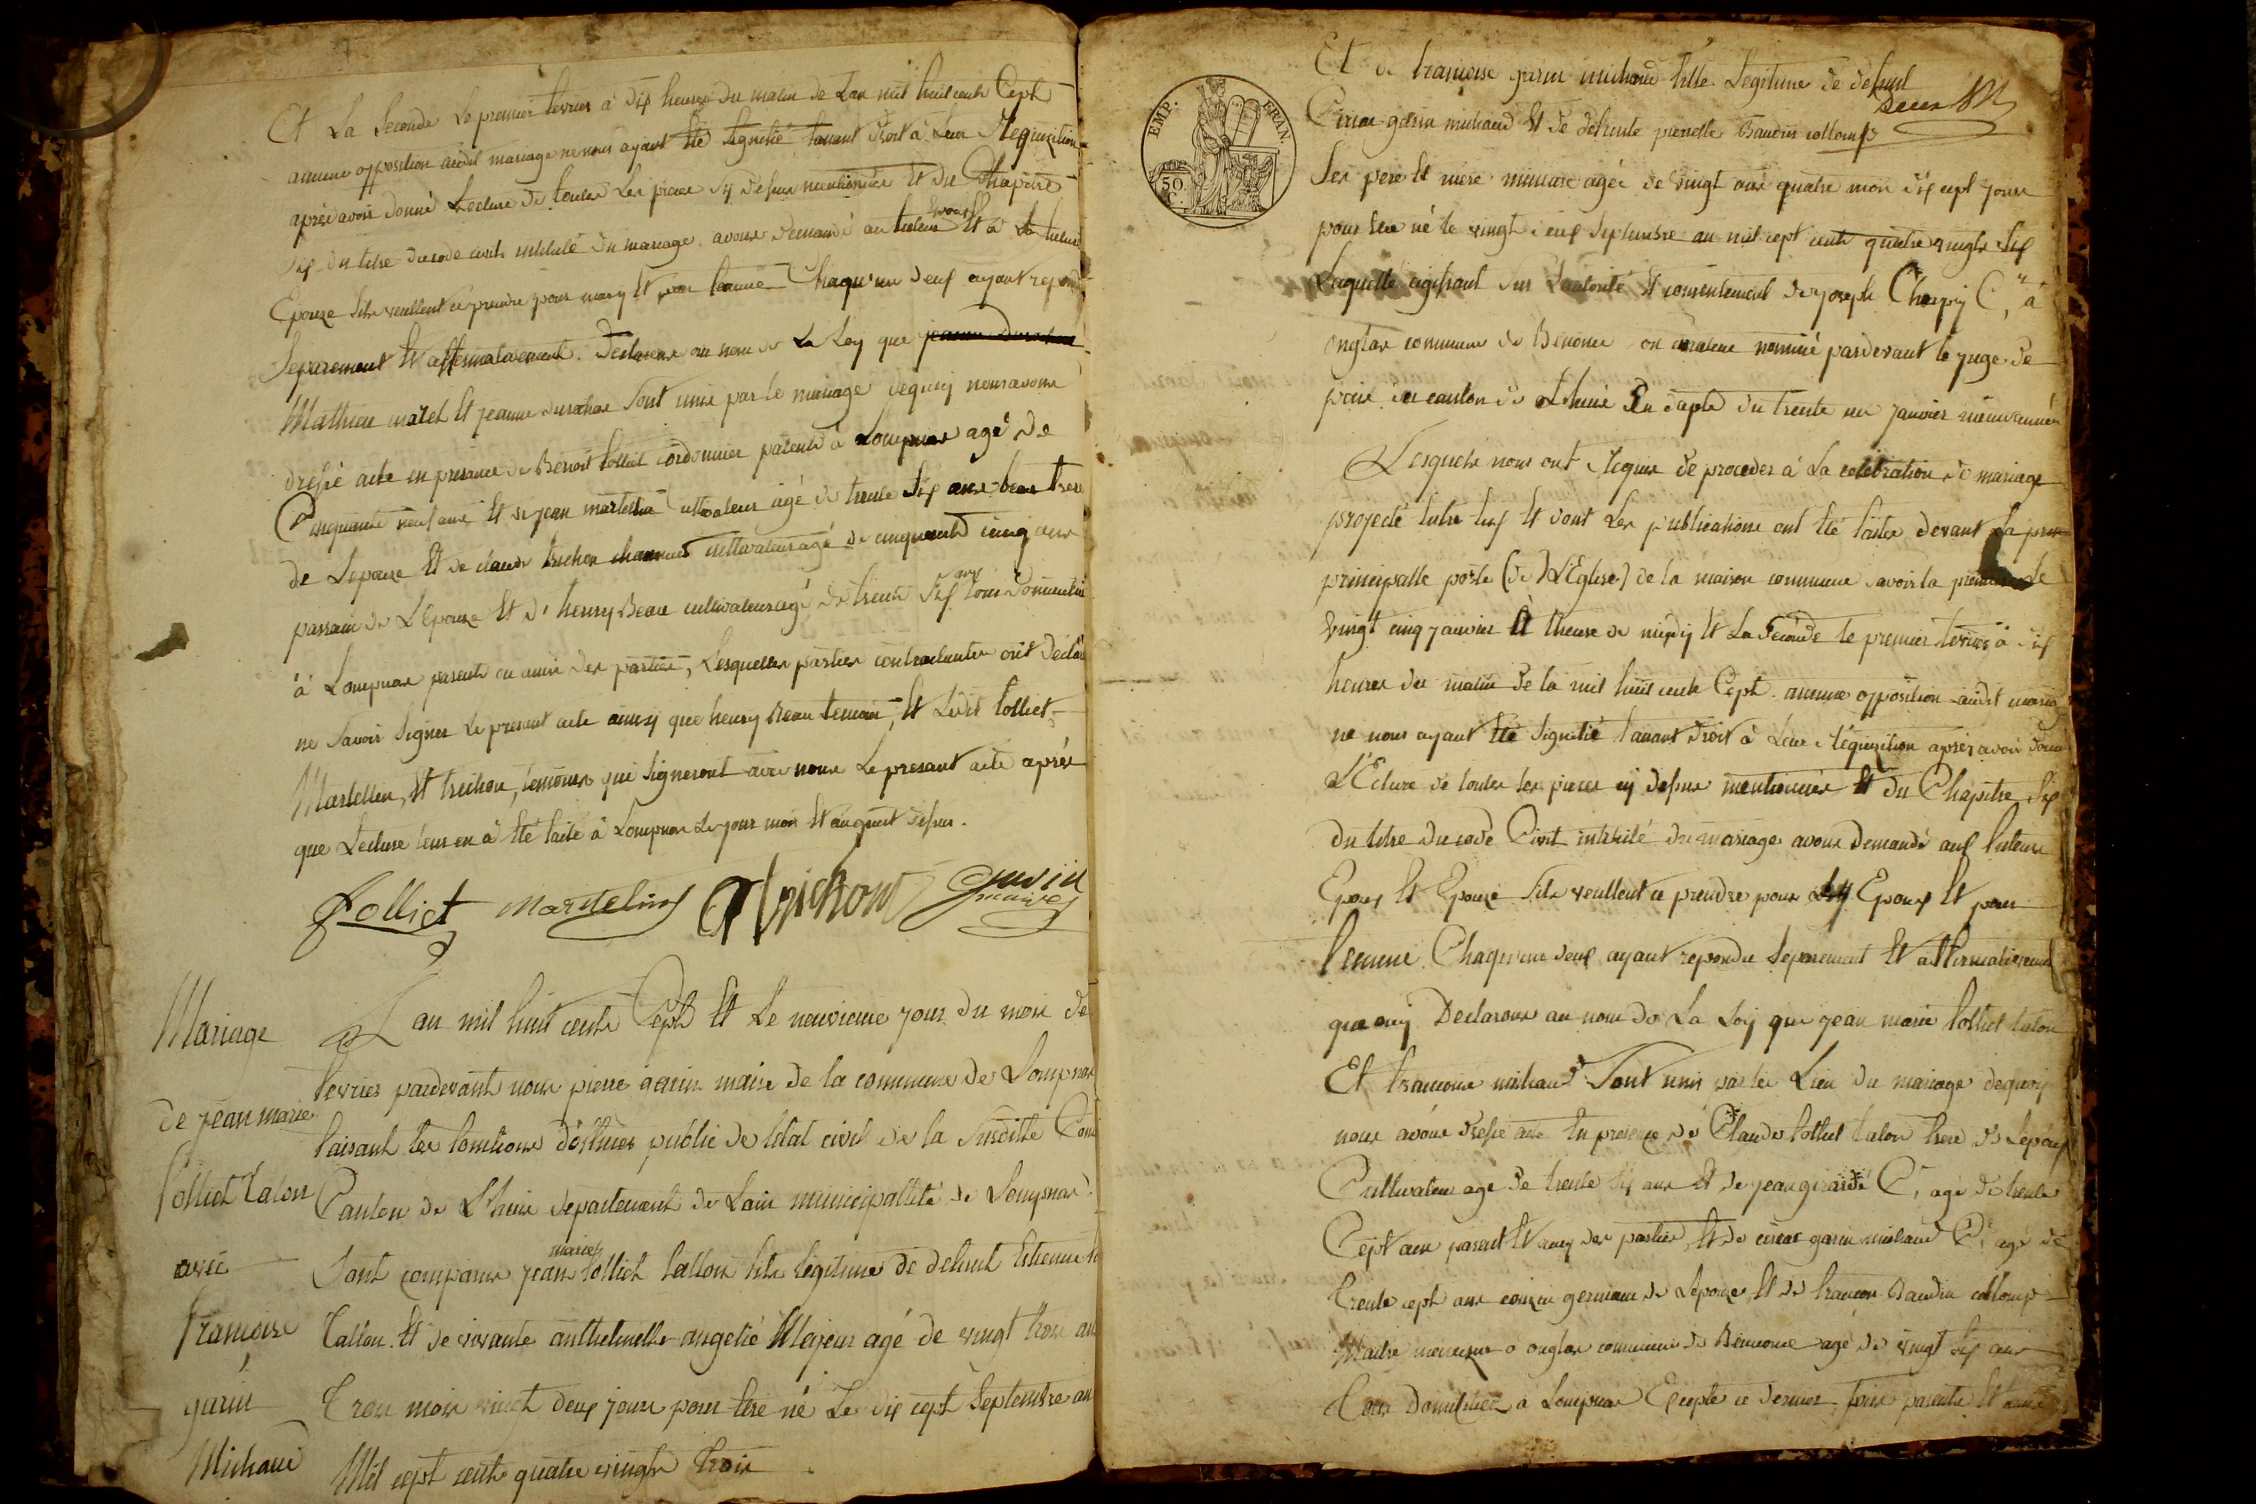 Et La Seconde Le premier fevrier à dix heures du matin de Lan mil huit cents Cept
aucune opposition audit mariage ne nous ayant Eté Signifié faisant droit à Leur Requizition
après avoir donné Lecture de toutes Les pieces cy dessus mentionnées Et du Chapitre
six du titre du code civil intitulé du mariage avons demandé au futeur Epoux Et à La future
Epouze Sils veullent ce prendre pour mary Et pour femme Chaqu'un deux ayant repondu
Separement Et affirmativement. Declarons au nom de La Loy que
Mathieu matel Et jeanne durochat Sont unis par le mariage dequoy nous avons
dressé acte en presance de Benoit folliet cordonnier patenté à Lompnas agé de
Cinquante neuf ans Et de jean martellin cultivateur agé de trente six ans beau frere
de Lepouze Et de claude trichon cultivateur agé de cinquante cinq ans
parrain de L'Epouze Et d'henry Beau cultivateur agé de trente six ans tous domiciliés
à Lompnas parents ou amis des parties, Lesquelles parties contractantes ont déclaré
ne Savoir Signer Le present acte ainsy que henry Beau temoin, Et Ledit folliet
Martellin, Et trichon, temoins qui Signeront avec nous Le presant acte après
que Lecture leur en à Eté faite à Lompnas Le jour mois Et an que dessus.
folliet martelin trichon garin maire
Mariage
de jean marie
folliet talon
avec
francoise
garin
Michaud
L'an mil huit cents Cept Et Le neuvieme jour du mois de
fevrier pardevant nous pierre garin maire de la commune de Lompnas
faisant les fonctions d'officier public de letat civil de la Susditte Com
Canton de L'huis departement de Lain municipallité de Lompnas
Sont comparus jean marie folliet tallon fils légitime de defunt Etienne
Tallon Et de vivante anthelmette angelié Majeur agé de vingt trois ans
Trois mois vingt deux jours pour Etre né Le dix cept Septembre an
Mil cept cents quatre vingts trois
EMP. FRAN.
50 C.
Et de francoise garin michaud fille Legitime de defunt
garin michaud Et de defunte pierrette Baudin collomp
Ses pere Et mere mineure agée de vingt ans quatre mois dix cept jours
pour Etre né le vingt deux Septembre an mil cept cents quatre vingts six
Laquelle agissant Sur Lautorité Et consentement de joseph Charpy C.r à
onglas commune de Benonce Son curateur nommé pardevant le juge de
paix du canton de Lhuis En dapte du trente un janvier
Lesquels nous ont Requis de proceder à La celebration de mariage
projecté Entre Eux Et dont Les publications ont Eté faites devant La
principalle porte (de L'Eglise) de la maison commune savoir la premiere Le
vingt cinq janvier à L'heure de midy Et La Seconde le premier fevrier à dix
heures du matin de la mil huit cents Cept aucune opposition audit mariage
ne nous ayant Eté Signifié faisant droit à Leur Réquizition après avoir donné
L'Ecture de toutes les pieces cy dessus mentionnées Et du Chapitre Six
du titre du code Civil intitulé du mariage avons demandé aux futeurs
Epoux Et Epouze Sils veullent ce prendre pour Epoux Et pour
femme. Chaqu'un deux ayant repondu Separement Et affirmativement
que ouy Declarons au nom de La Loy que jean marie folliet talon
Et francoise michaud Sont unis par les Lien du mariage dequoy
nous avons dressé acte En presence de Claude folliet talon frere de Lepoux
Cultivateur agé de trente six ans Et de jean girardé C.r agé de trente
Cept ans parent Et amy des parties, Et de garin michaud C.r agé de
trente cept ans cousin germain de Lepouze Et de francois Baudin collomp
Maitre à onglas commune de Benonce agé de vingt six ans
Tous domiciliés a Lompnas Excepté ce dernier, tous parents Et amis